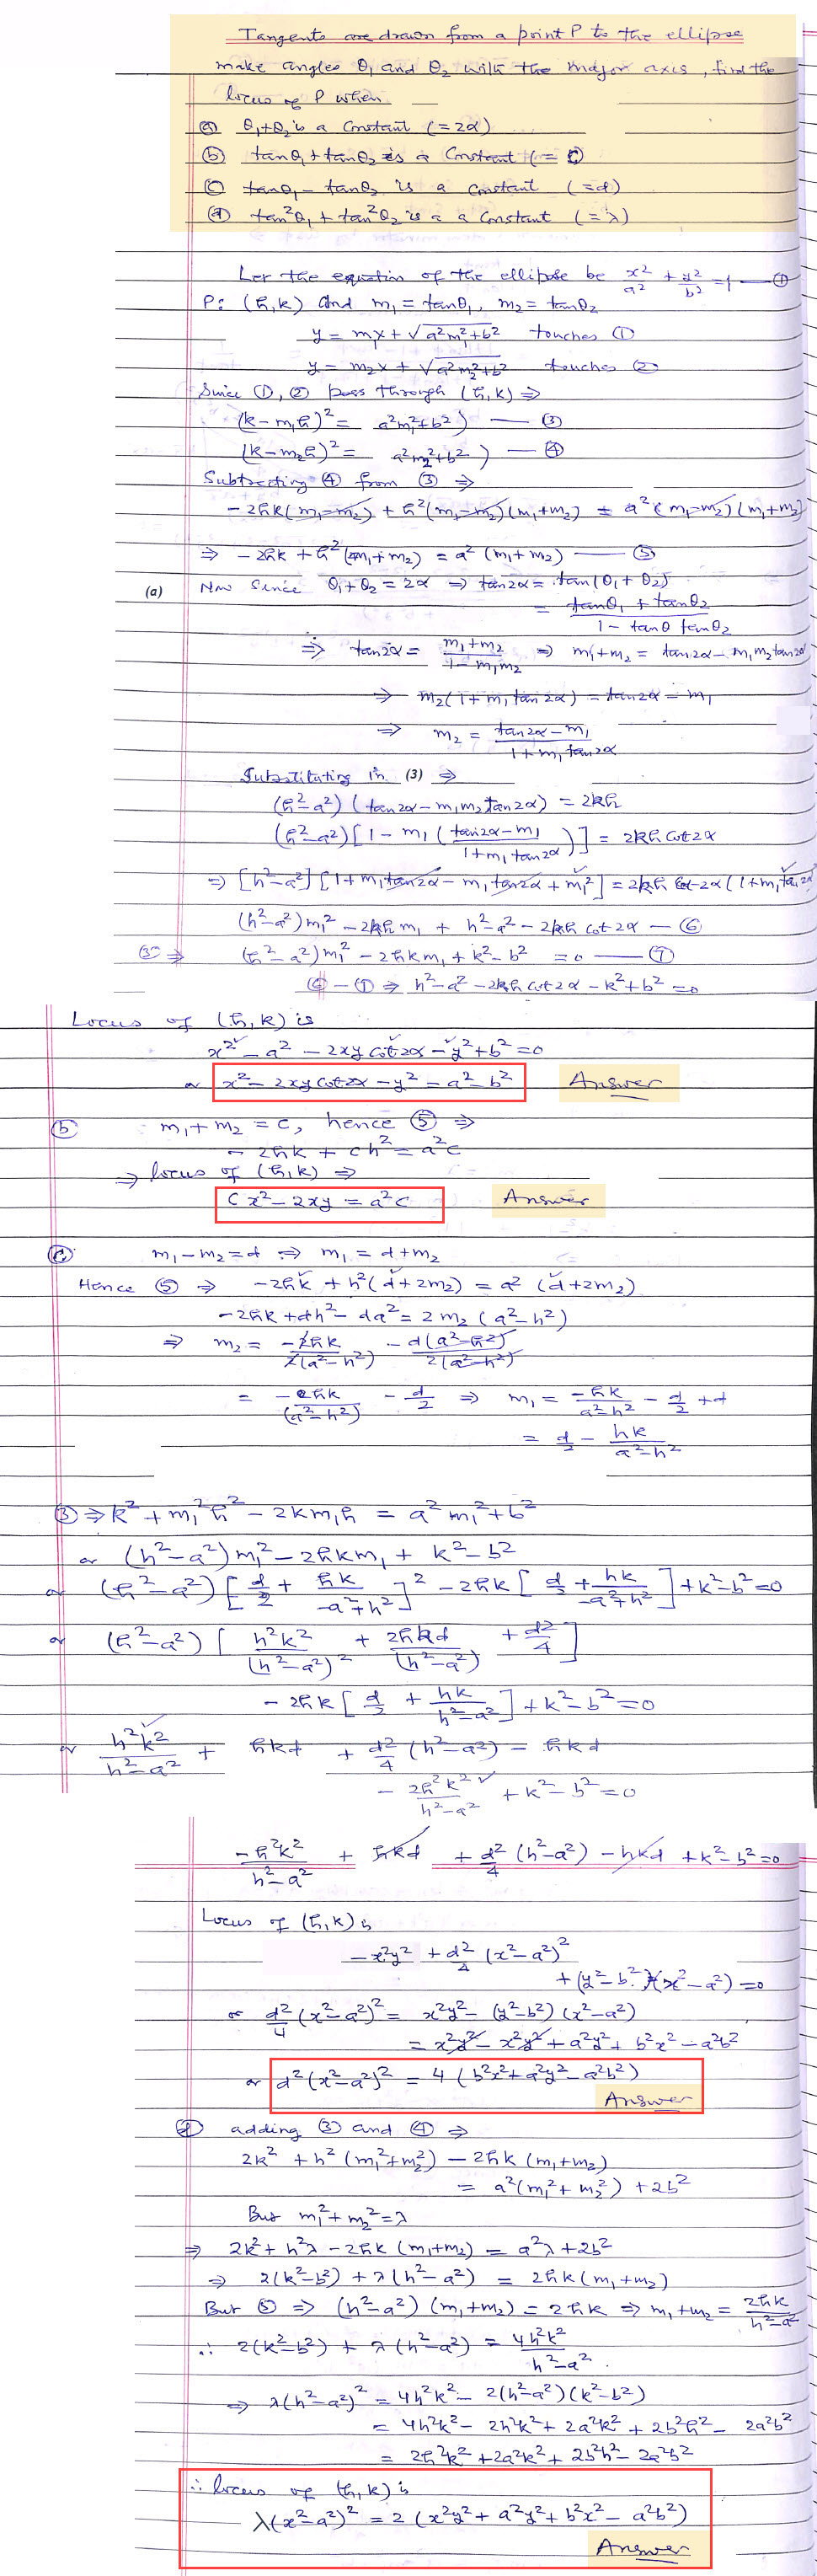 Tangents are drawn from a point P to the ellipse
make angles θ₁ and θ₂ with the major axis, find the
locus of P when
(a) θ₁+θ₂ is a constant (=2α)
(b) tanθ₁+tanθ₂ is a constant (= C)
(c) tanθ₁-tanθ₂ is a constant (=d)
(d) tan²θ₁+tan²θ₂ is a a constant (=λ)
Let the equation of the ellipse be x²/a² + y²/b² = 1 — ①
P: (h,k) and m₁=tanθ₁, m₂=tanθ₂
y = m₁x+√(a²m₁²+b²) touches ①
y = m₂x + √(a²m₂²+b²) touches ②
Since ①, ② pass through (h,k) ⇒
(k-m₁h)² = a²m₁²+b²) — ③
(k-m₂h)² = a²m₂²+b²) — ④
Subtracting ④ from ③ ⇒
-2hk(m₁-m₂) + h²(m₁-m₂)(m₁+m₂) = a²(m₁-m₂)(m₁+m₂)
⇒ -2hk + h²(m₁+m₂) = a²(m₁+m₂) — ⑤
(a) Now since θ₁+θ₂=2α ⇒ tan2α = tan(θ₁+θ₂)
= (tanθ₁ + tanθ₂)/(1 - tanθ tanθ₂)
⇒ tan2α = (m₁+m₂)/(1-m₁m₂) ⇒ m₁+m₂ = tan2α-m₁m₂tan2α
⇒ m₂(1+m₁tan2α) = tan2α-m₁
⇒ m₂ = (tan2α-m₁)/(1+m₁tan2α)
Substituting in (3) ⇒
(h²-a²)(tan2α-m₁m₂tan2α) = 2kh
(h²-a²)[1 - m₁((tan2α-m₁)/(1+m₁tan2α))] = 2kh cot2α
⇒ [h²-a²][1+m₁tan2α - m₁tan2α + m₁²] = 2kh cot2α(1+m₁tan2α
(h²-a²)m₁² - 2kh m₁ + h²-a²-2kh cot2α — ⑥
③ ⇒ (h²-a²)m₁² - 2hkm₁ + k²-b² = 0 — ⑦
⑥-⑦ ⇒ h²-a²-2kh cot2α-k²+b²=0
Locus of (h,k) is
x²-a²-2xy cot2α-y²+b²=0
or x²-2xycot2α-y²=a²-b² Answer
(b) m₁+m₂=c, hence ⑤ ⇒
-2hk + ch²=a²c
⇒ locus of (h,k) ⇒
cx²-2xy=a²c Answer
(c) m₁-m₂=d ⇒ m₁=d+m₂
Hence ⑤ ⇒ -2hk+h²(d+2m₂) = a²(d+2m₂)
-2hk+dh²-da²=2m₂(a²-h²)
⇒ m₂ = -2hk/2(a²-h²) - d(a²-h²)/2(a²-h²)
= -hk/(a²-h²) - d/2 ⇒ m₁ = -hk/(a²-h²) - d/2 + d
= d/2 - hk/(a²-h²)
③ ⇒ k²+m₁²h²-2km₁h = a²m₁²+b²
or (h²-a²)m₁²-2hkm₁+k²-b²
or (h²-a²)[d/2 + hk/(-a²+h²)]² - 2hk[d/2 + hk/(-a²+h²)]+k²-b²=0
or (h²-a²)[h²k²/(h²-a²)² + 2hkd/(h²-a²) + d²/4]
- 2hk[d/2 + hk/(h²-a²)]+k²-b²=0
or h²k²/(h²-a²) + hkd + d²/4 (h²-a²) - hkd
- 2h²k²/(h²-a²) + k²-b²=0
-h²k²/(h²-a²) + hkd + d²/4 (h²-a²) - hkd + k²-b²=0
Locus of (h,k) is
-x²y² + d²/4 (x²-a²)²
+(y²-b²)(x²-a²)=0
or d²/4 (x²-a²)² = x²y²-(y²-b²)(x²-a²)
= x²y²-x²y²+a²y²+b²x²-a²b²
or d²(x²-a²)² = 4(b²x²+a²y²-a²b²)
Answer
(d) adding ③ and ④ ⇒
2k²+h²(m₁²+m₂²)-2hk(m₁+m₂)
= a²(m₁²+m₂²)+2b²
But m₁²+m₂²=λ
⇒ 2k²+h²λ-2hk(m₁+m₂)=a²λ+2b²
⇒ 2(k²-b²)+λ(h²-a²) = 2hk(m₁+m₂)
But ⑤ ⇒ (h²-a²)(m₁+m₂)=2hk ⇒ m₁+m₂ = 2hk/(h²-a²)
∴ 2(k²-b²)+λ(h²-a²) = 4h²k²/(h²-a²)
⇒ λ(h²-a²)² = 4h²k²-2(h²-a²)(k²-b²)
= 4h²k²-2h²k²+2a²k²+2b²h²-2a²b²
= 2h²k²+2a²k²+2b²h²-2a²b²
∴ locus of (h,k) is
λ(x²-a²)² = 2(x²y²+a²y²+b²x²-a²b²)
Answer